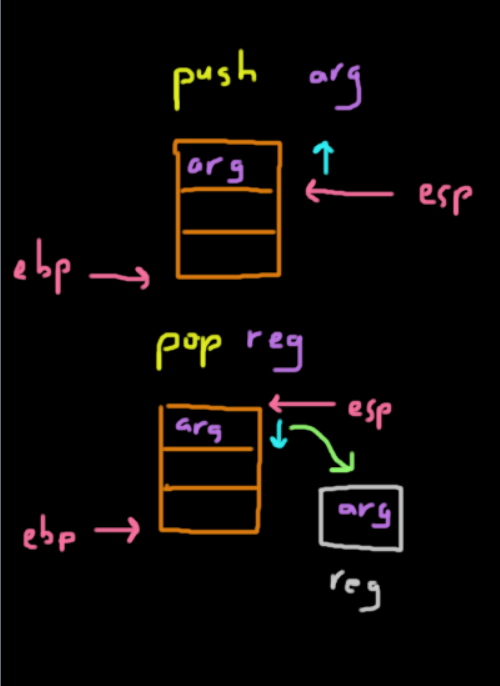 push arg
arg
esp
ebp
pop reg
esp
arg
arg
ebp
reg